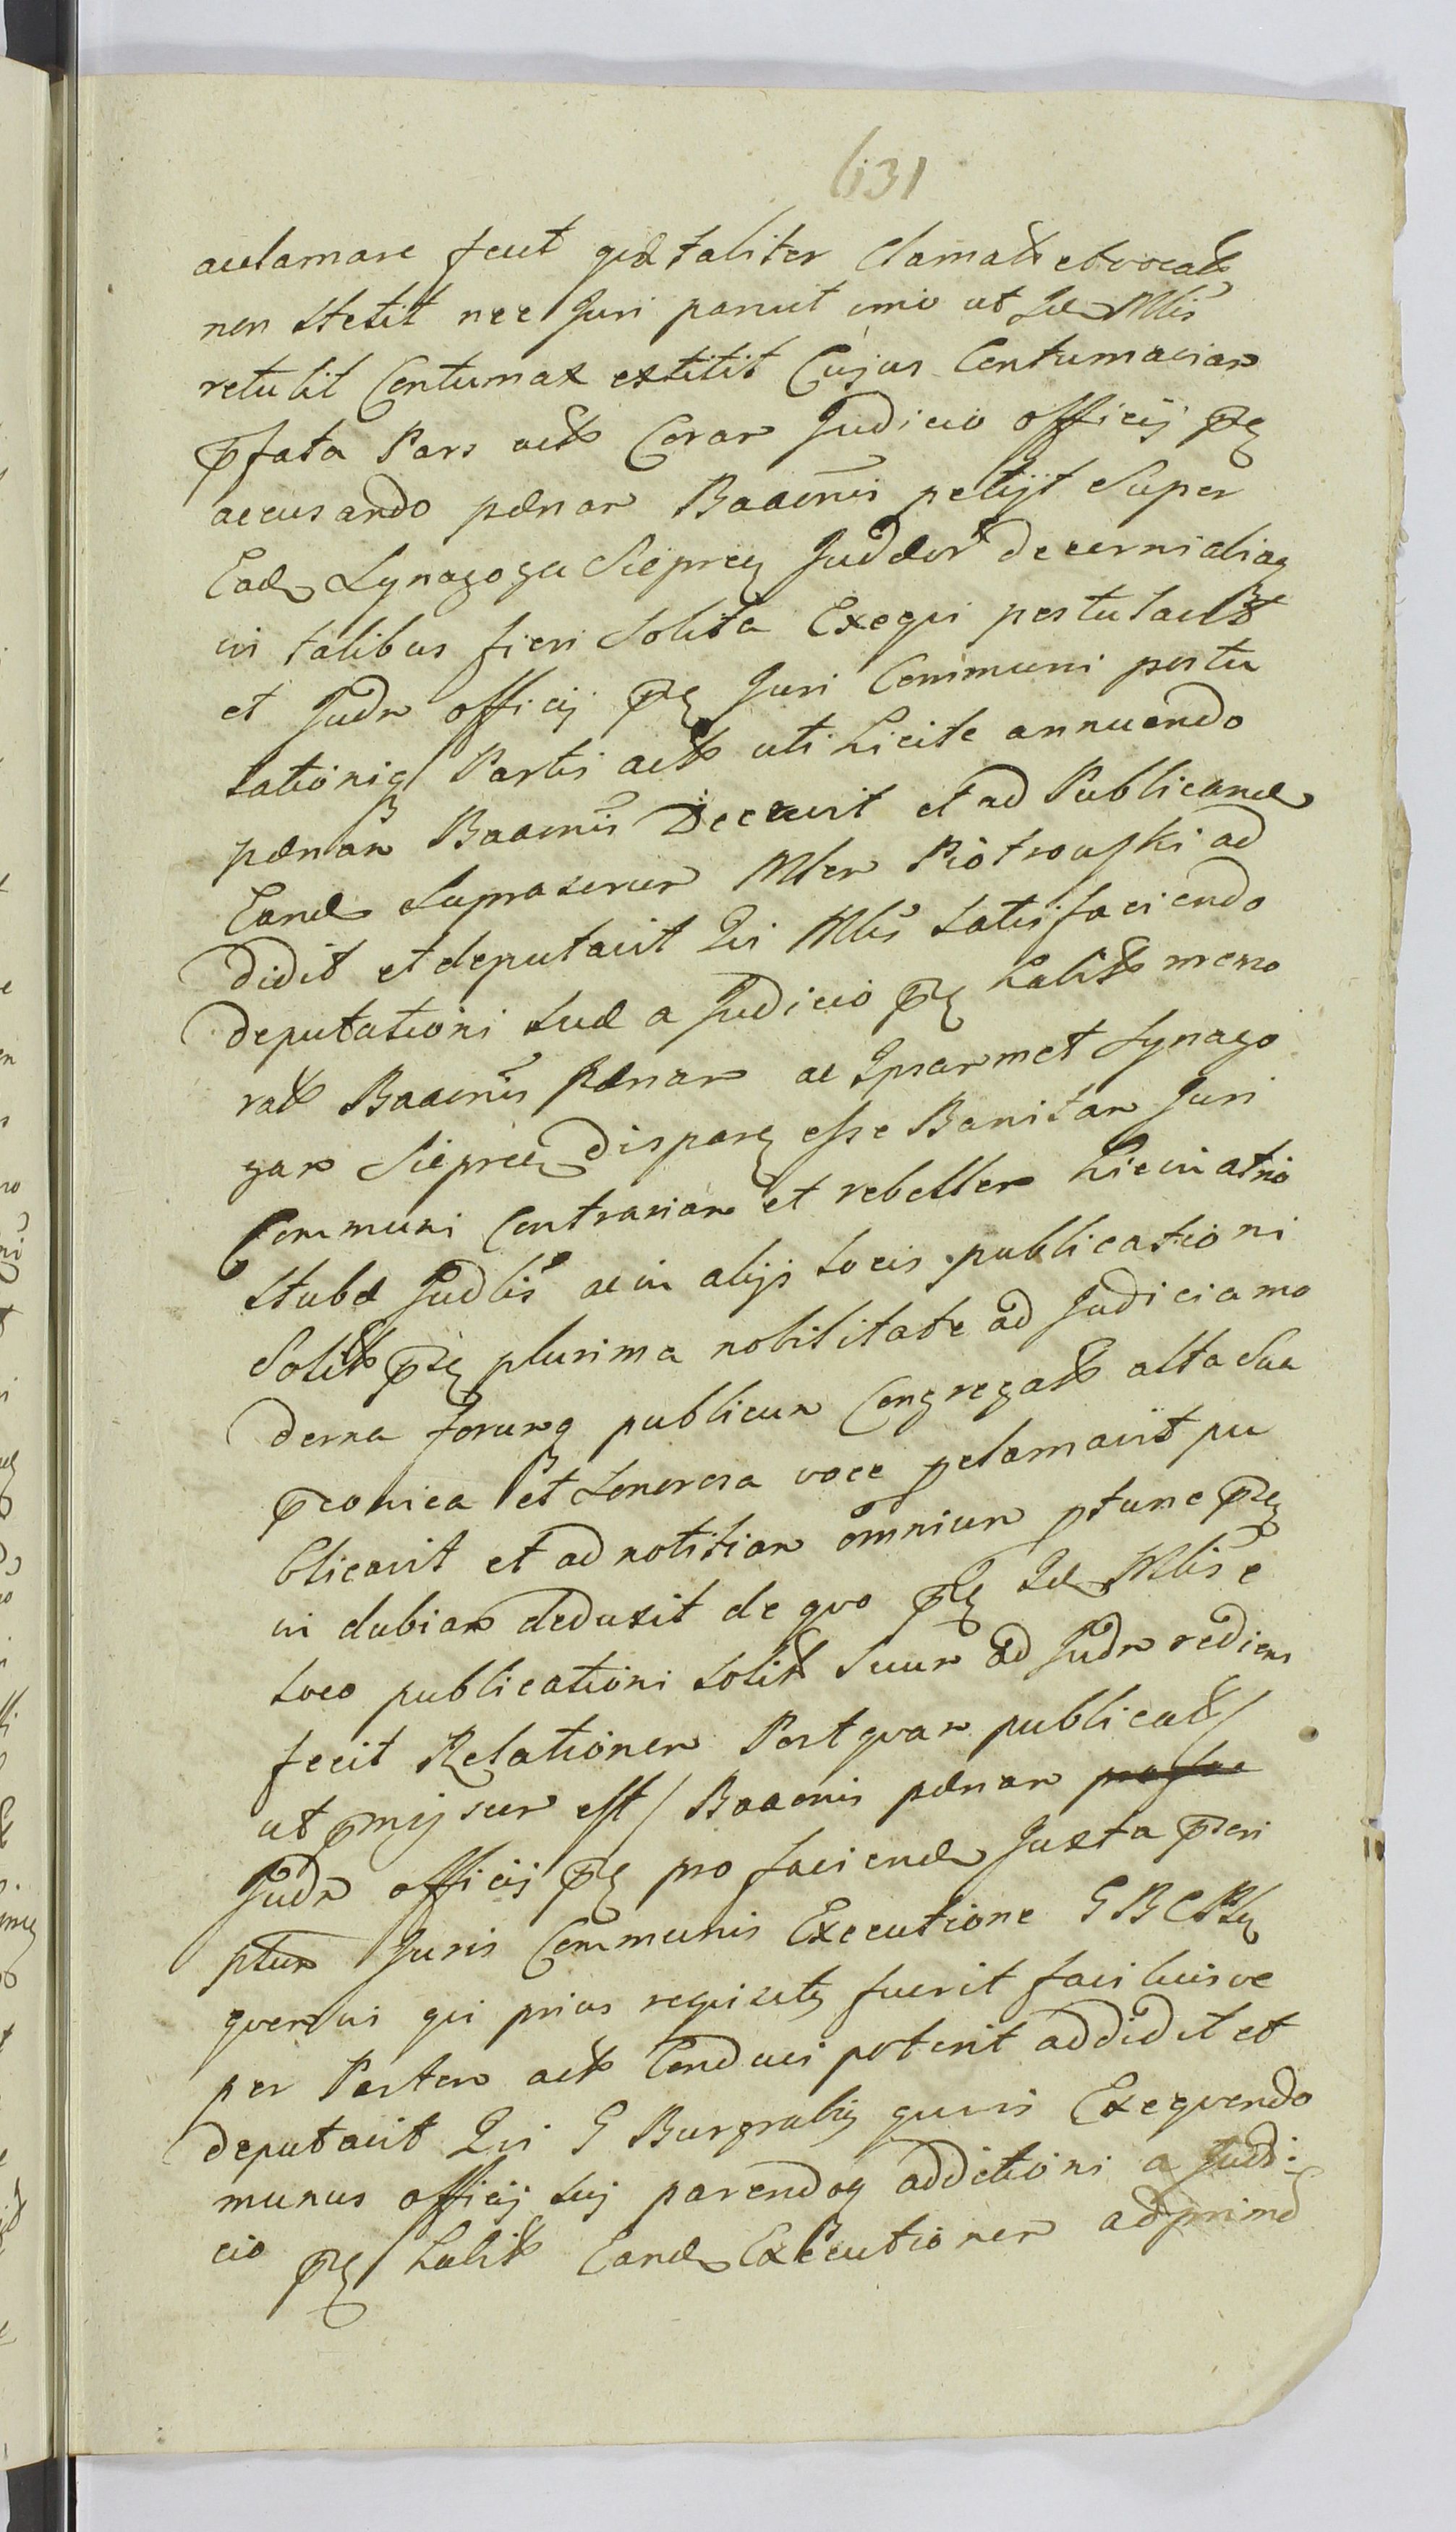 631
aclamare fecit quæ taliter Clamata et vocata
non Stetit nec Juri paruit imo ut Id Mlis
retulit Contumax extitit Cujus Contumaciam
pfata Pars act Coram Judicio officij pñ
accusando pænam Baaonis petijt Super
Ead Synagoga Sieprcn Judæor decerni aliaq
in talibus fieri Solita Exeqvi postulavit
et Judm officij pñ Juri Communi postu
lationiq Partis act uti Licite annuendo
pænam Baaonis Decrevit et ad Publicand
Eand Supra scrum Mlem Piotrowski ad
didit et deputavit Qui Mlis Satisfaciendo
deputationi suæ a Judicio pñ habit memo
rat Baaonis Pænam ac Ipsammet Synago
gam Sieprcen disparen esse Banitam Juri
Communi Contrariam et rebellem hic in atrio
Stubæ Judlis ac in alijs Locis publicationi
Solit pñ plurima nobilitate ad Judicia mo
derna forumq publicum Congregata alta Sua
pconica et Sonorosa voce pclamavit pu
blicavit et ad notitiam omnium ptunc pñ
in dubiam deduxit de qvo pñ Id Mlis e
Loco publicationi solit Suum ad Judm rediens
fecit Relationem Post qvam publicat/
ut pmissum est/ Baaonis pænam
Judm officij pñ pro faciend Juxta pscri
ptum Juris Communis Executione G B C Plen
qvemvis qvi prius reqvisitus fuerit faciliusve
per Partem act Conduci poterit addidit et
deputavit Qui G Burgrabius qvivis Exeqvendo
munus officij sui parendoq additioni a Judi:
cio pñ habit Eand Executionem ad primæ